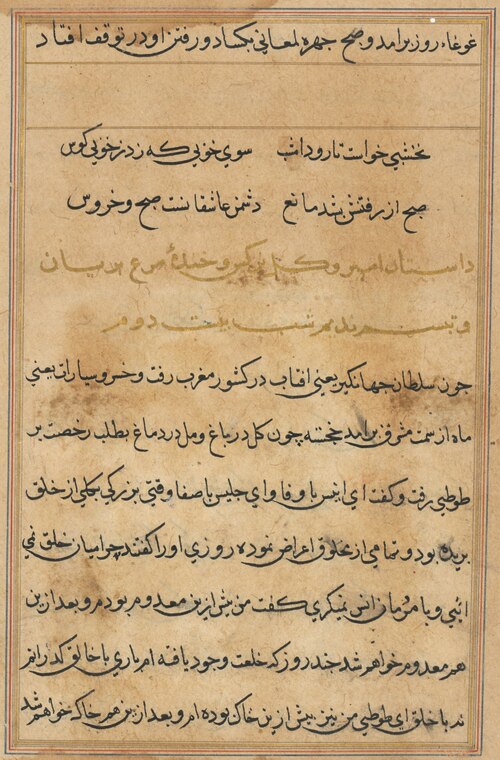 غوغاء روز برامد و صبح جهره لمعانی بکساد و رفتن او در توقف افتاد
نخشبی خواست تا رود امشب سوی خوبی که زد ز خوبی کوس
صبح از رفتنش بشد مانع دشمن عاشقانست صبح و خروس
داستان امیر و کنیزک و خنده مرغ بریان
شب بیست دوم
چون سلطان جهانکیر یعنی افتاب در کشور مغرب رفت و خسرو سیارات یعنی
ماه از سمت مشرق برامد خجسته چون کل در باغ و مل در دماغ بطلب رخصت بر
طوطی رفت و کفت ای انیس با وفا و ای جلیس با صفا وقتی بزرکی بکلی از خلق
بریده بود و تمامی از مخلوق اعراض نموده روزی او را کفتند چرا میان خلق نمی
ائیی و با مردمان انس نمیکری کفت من پیش ازین معدوم بودم و بعد ازین
هم معدوم خواهم شد چند روز که خلعت وجود یافته ام باری با خالق کذرانم
نه با خلق ای طوطی من نیز پیش ازین خاک بوده ام و بعد ازین هم خاک خواهم شد